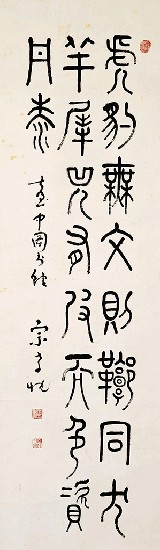 虎豹無文則鞹同犬
羊犀兕有皮而色資
丹桼
宗孝忱